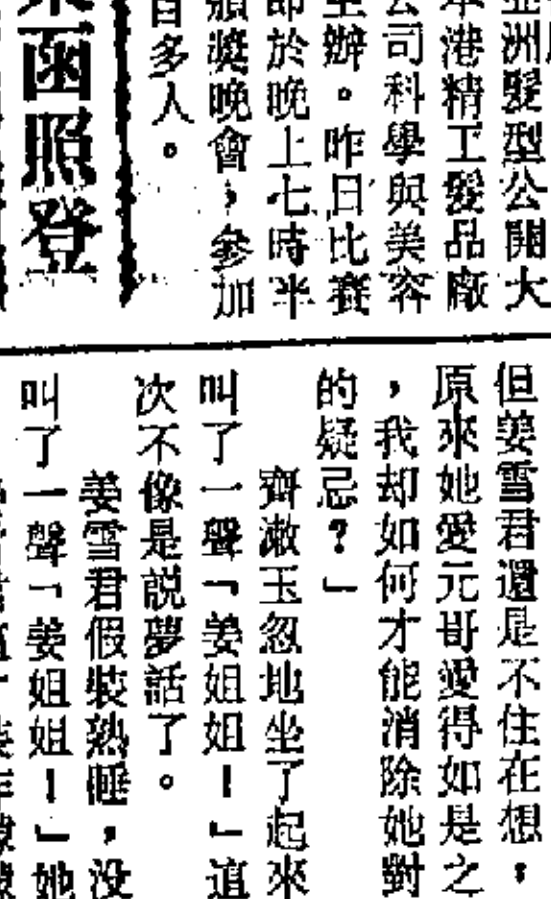 亞洲髮型公開大
本港精工髮品廠
公司科學與美容
主辦。昨日比賽
即於晚上七時半
頒獎晚會，參加
百多人。
來函照登
但姜雪君還是不住在想，
原來她愛元哥愛得如是之
，我却如何才能消除她對
的疑忌？」
齊漱玉忽地坐了起來
叫了一聲「姜姐姐！」這
次不像是説夢話了。
姜雪君假裝熟睡，没
叫了一聲「姜姐姐！」她